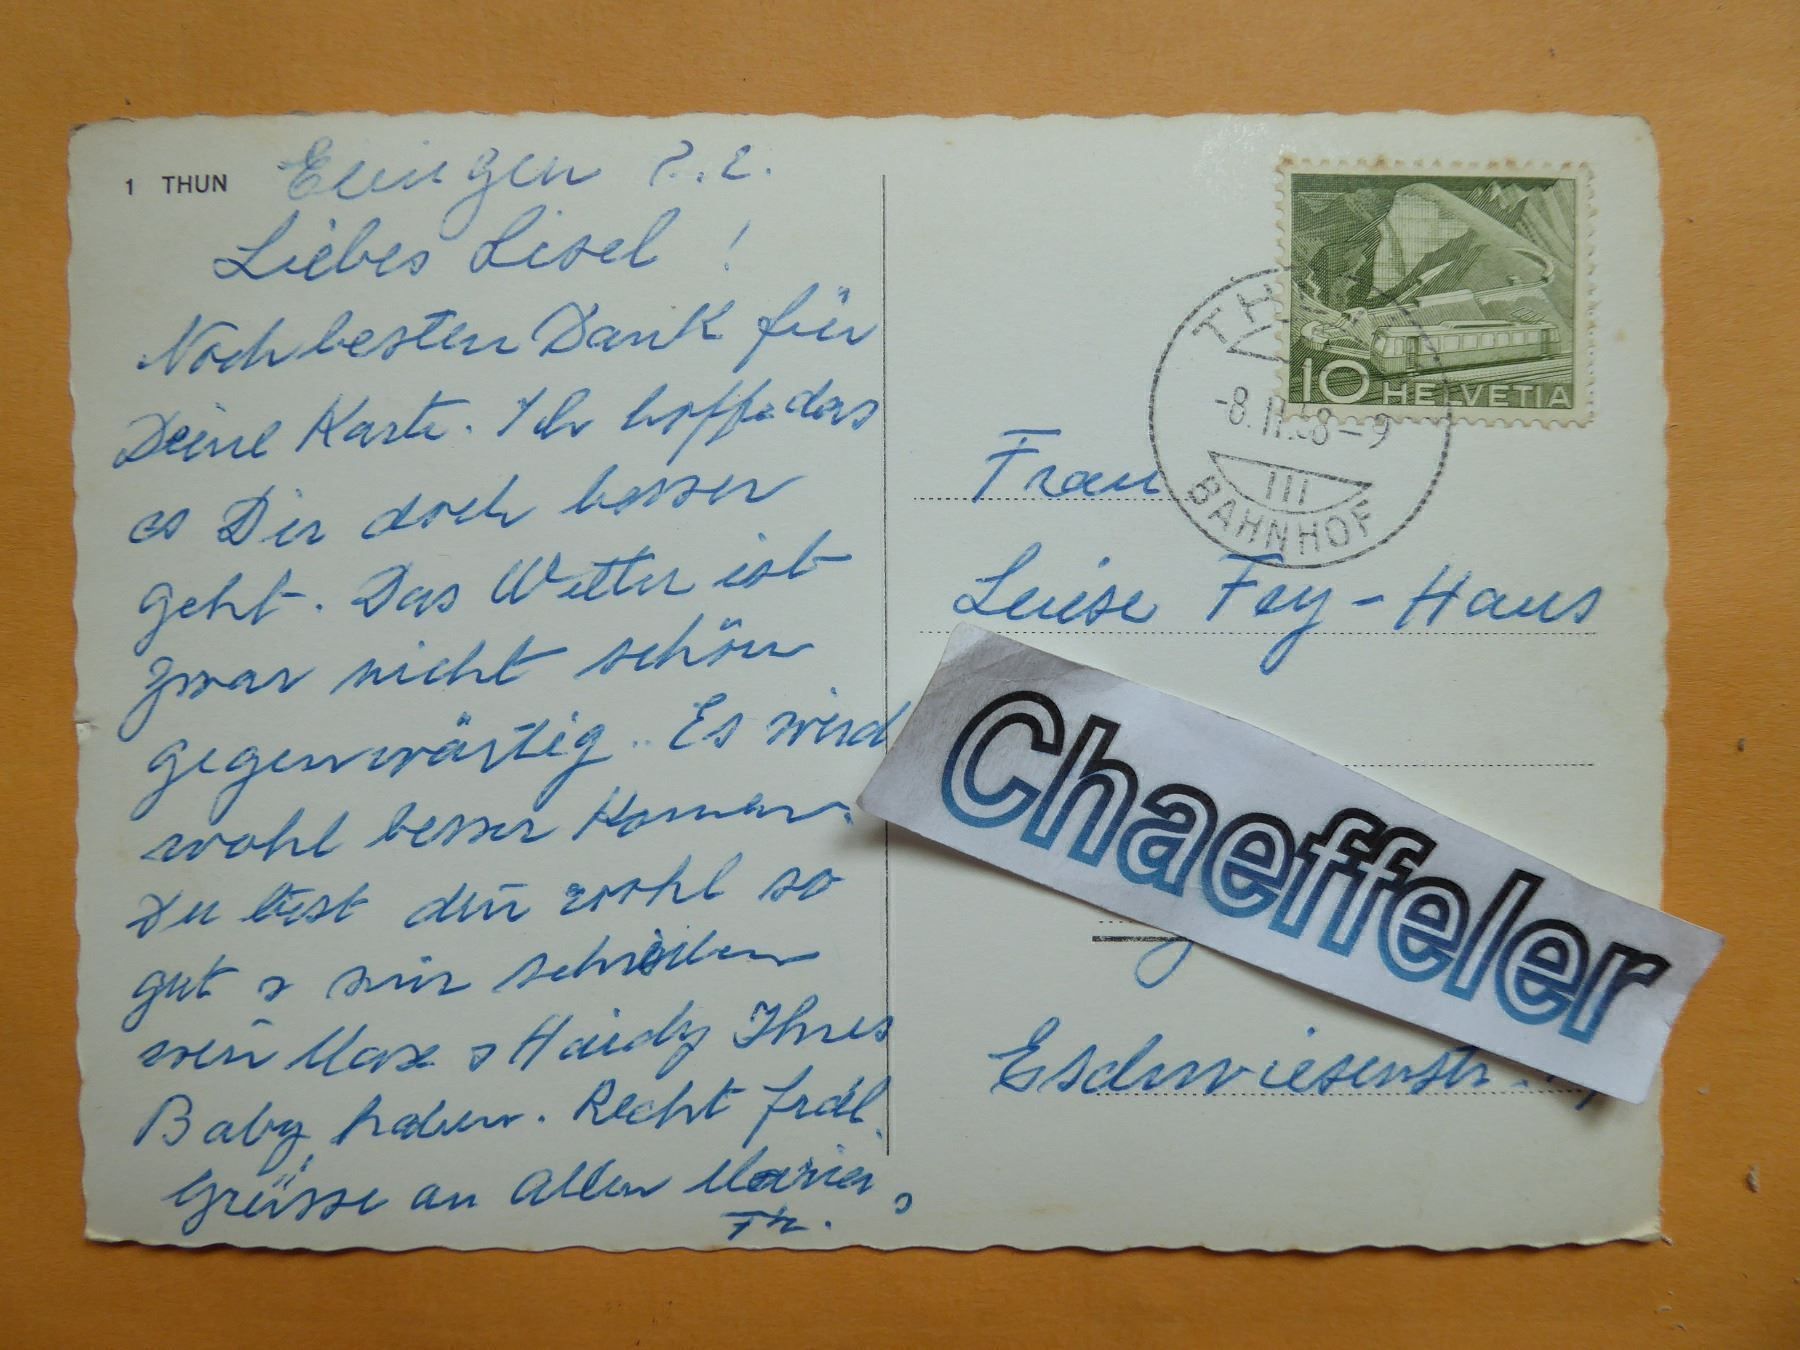 1 THUN
Liebes Lisel !
Noch besten Dank für
Deine Karte. Ich hoffe das
es Dir doch besser
geht. Das Wetter ist
zwar nicht schön
gegenwärtig.. Es wird
wohl besser Kommen.
Du bist den̄ wohl so
gut & mir schreiben
wen̄ Max & Haidy Ihres
Baby, haben. Recht frdl.
Grüsse an Allen
THUN
-8.11. 8-9
III
BAHNHOF
10 HELVETIA
Frau
Luise Fey-Haus
Chaeffeler
Eschwiesenstr.